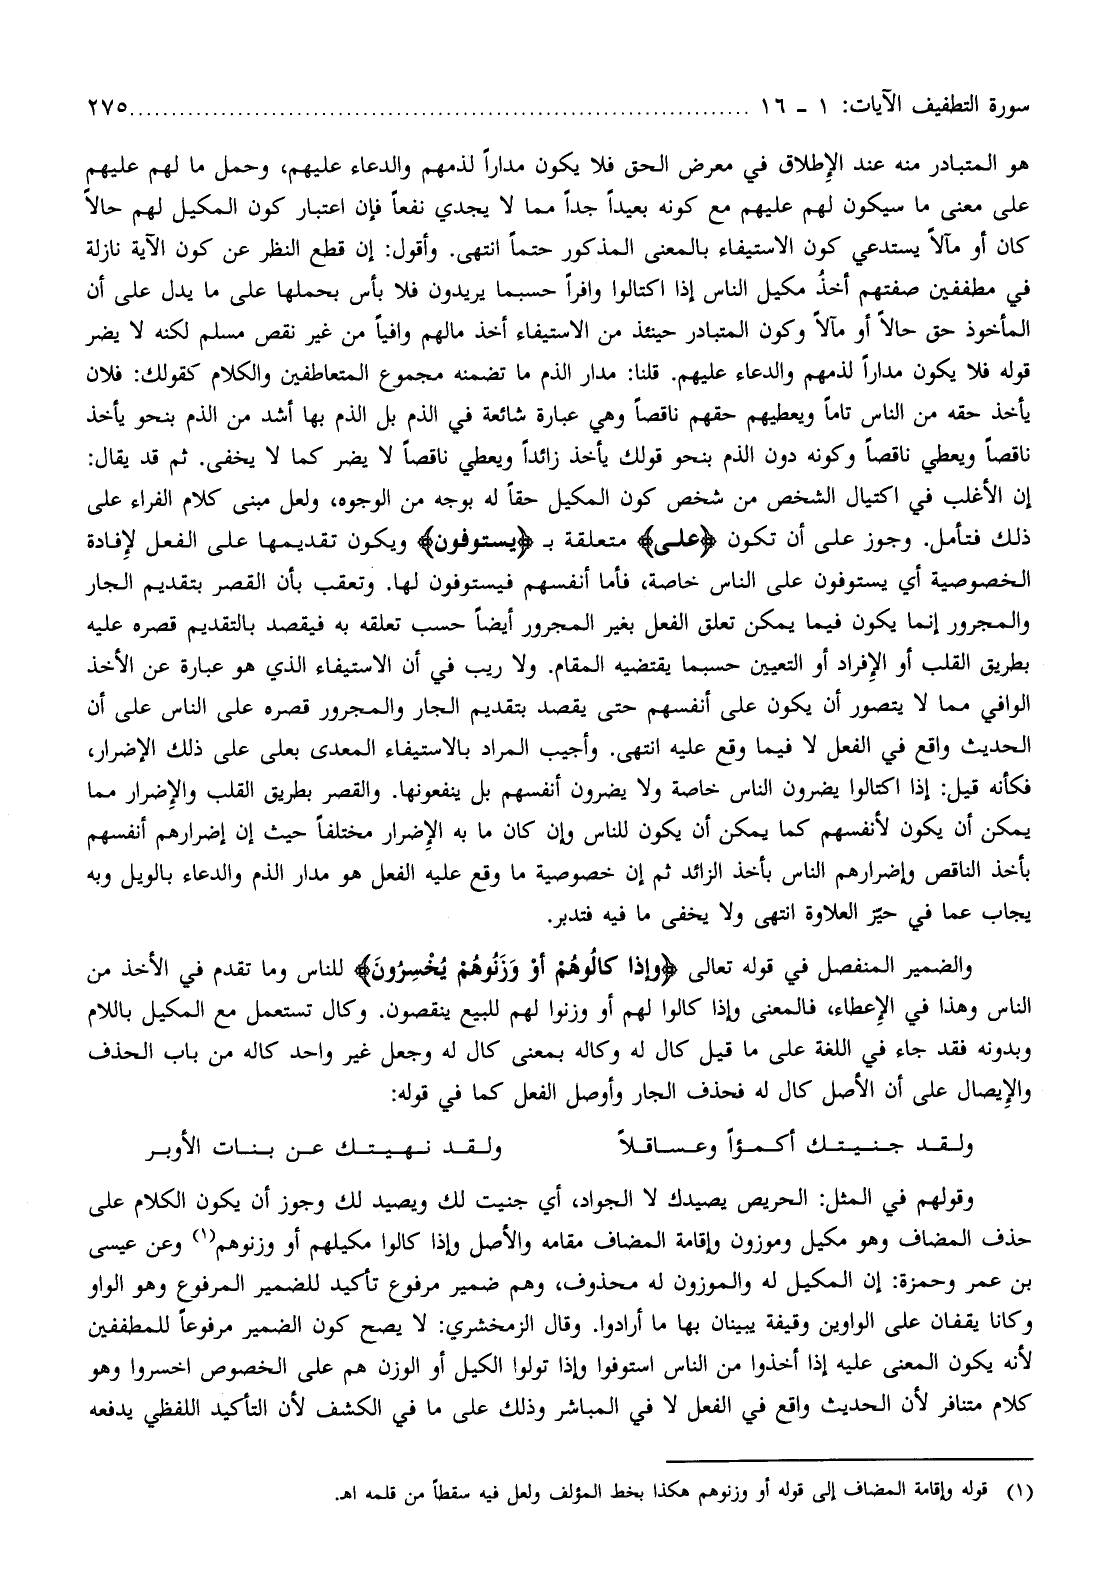 سورة التطفيف الآيات: ١ - ١٦ ........................................................................... ٢٧٥
هو المتبادر منه عند الإطلاق في معرض الحق فلا يكون مداراً لذمهم والدعاء عليهم، وحمل ما لهم عليهم
على معنى ما سيكون لهم عليهم مع كونه بعيداً جداً مما لا يجدي نفعاً فإن اعتبار كون المكيل لهم حالاً
كان أو مآلاً يستدعي كون الاستيفاء بالمعنى المذكور حتماً انتهى. وأقول: إن قطع النظر عن كون الآية نازلة
في مطففين صفتهم أخذُ مكيل الناس إذا اكتالوا وافراً حسبما يريدون فلا بأس بحملها على ما يدل على أن
المأخوذ حق حالاً أو مآلاً وكون المتبادر حينئذ من الاستيفاء أخذ مالهم وافياً من غير نقص مسلم لكنه لا يضر
قوله فلا يكون مداراً لذمهم والدعاء عليهم. قلنا: مدار الذم ما تضمنه مجموع المتعاطفين والكلام كقولك: فلان
يأخذ حقه من الناس تاماً ويعطيهم حقهم ناقصاً وهي عبارة شائعة في الذم بل الذم بها أشد من الذم بنحو يأخذ
ناقصاً ويعطي ناقصاً وكونه دون الذم بنحو قولك يأخذ زائداً ويعطي ناقصاً لا يضر كما لا يخفى. ثم قد يقال:
إن الأغلب في اكتيال الشخص من شخص كون المكيل حقاً له بوجه من الوجوه، ولعل مبنى كلام الفراء على
ذلك فتأمل. وجوز على أن تكون ﴿على﴾ متعلقة بـ ﴿يستوفون﴾ ويكون تقديمها على الفعل لإفادة
الخصوصية أي يستوفون على الناس خاصة، فأما أنفسهم فيستوفون لها. وتعقب بأن القصر بتقديم الجار
والمجرور إنما يكون فيما يمكن تعلق الفعل بغير المجرور أيضاً حسب تعلقه به فيقصد بالتقديم قصره عليه
بطريق القلب أو الإفراد أو التعيين حسبما يقتضيه المقام. ولا ريب في أن الاستيفاء الذي هو عبارة عن الأخذ
الوافي مما لا يتصور أن يكون على أنفسهم حتى يقصد بتقديم الجار والمجرور قصره على الناس على أن
الحديث واقع في الفعل لا فيما وقع عليه انتهى. وأجيب المراد بالاستيفاء المعدى بعلى على ذلك الإضرار،
فكأنه قيل: إذا اكتالوا يضرون الناس خاصة ولا يضرون أنفسهم بل ينفعونها. والقصر بطريق القلب والإضرار مما
يمكن أن يكون لأنفسهم كما يمكن أن يكون للناس وإن كان ما به الإضرار مختلفاً حيث إن إضرارهم أنفسهم
بأخذ الناقص وإضرارهم الناس بأخذ الزائد ثم إن خصوصية ما وقع عليه الفعل هو مدار الذم والدعاء بالويل وبه
يجاب عما في حيّز العلاوة انتهى ولا يخفى ما فيه فتدبر.
والضمير المنفصل في قوله تعالى ﴿وإذا كالُوهُمْ أوْ وَزَنُوهُمْ يُخْسِرُونَ﴾ للناس وما تقدم في الأخذ من
الناس وهذا في الإعطاء، فالمعنى وإذا كالوا لهم أو وزنوا لهم للبيع ينقصون. وكال تستعمل مع المكيل باللام
وبدونه فقد جاء في اللغة على ما قيل كال له وكاله بمعنى كال له وجعل غير واحد كاله من باب الحذف
والإيصال على أن الأصل كال له فحذف الجار وأوصل الفعل كما في قوله:
ولـقـد جـنـيـتـك أكـمـؤاً وعـسـاقـلاً ولـقـد نـهـيـتـك عـن بـنـات الأوبـر
وقولهم في المثل: الحريص يصيدك لا الجواد، أي جنيت لك ويصيد لك وجوز أن يكون الكلام على
حذف المضاف وهو مكيل وموزون وإقامة المضاف مقامه والأصل وإذا كالوا مكيلهم أو وزنوهم(١) وعن عيسى
بن عمر وحمزة: إن المكيل له والموزون له محذوف، وهم ضمير مرفوع تأكيد للضمير المرفوع وهو الواو
وكانا يقفان على الواوين وقيفة يبينان بها ما أرادوا. وقال الزمخشري: لا يصح كون الضمير مرفوعاً للمطففين
لأنه يكون المعنى عليه إذا أخذوا من الناس استوفوا وإذا تولوا الكيل أو الوزن هم على الخصوص اخسروا وهو
كلام متنافر لأن الحديث واقع في الفعل لا في المباشر وذلك على ما في الكشف لأن التأكيد اللفظي يدفعه
(١) قوله وإقامة المضاف إلى قوله أو وزنوهم هكذا بخط المؤلف ولعل فيه سقطاً من قلمه اهـ.